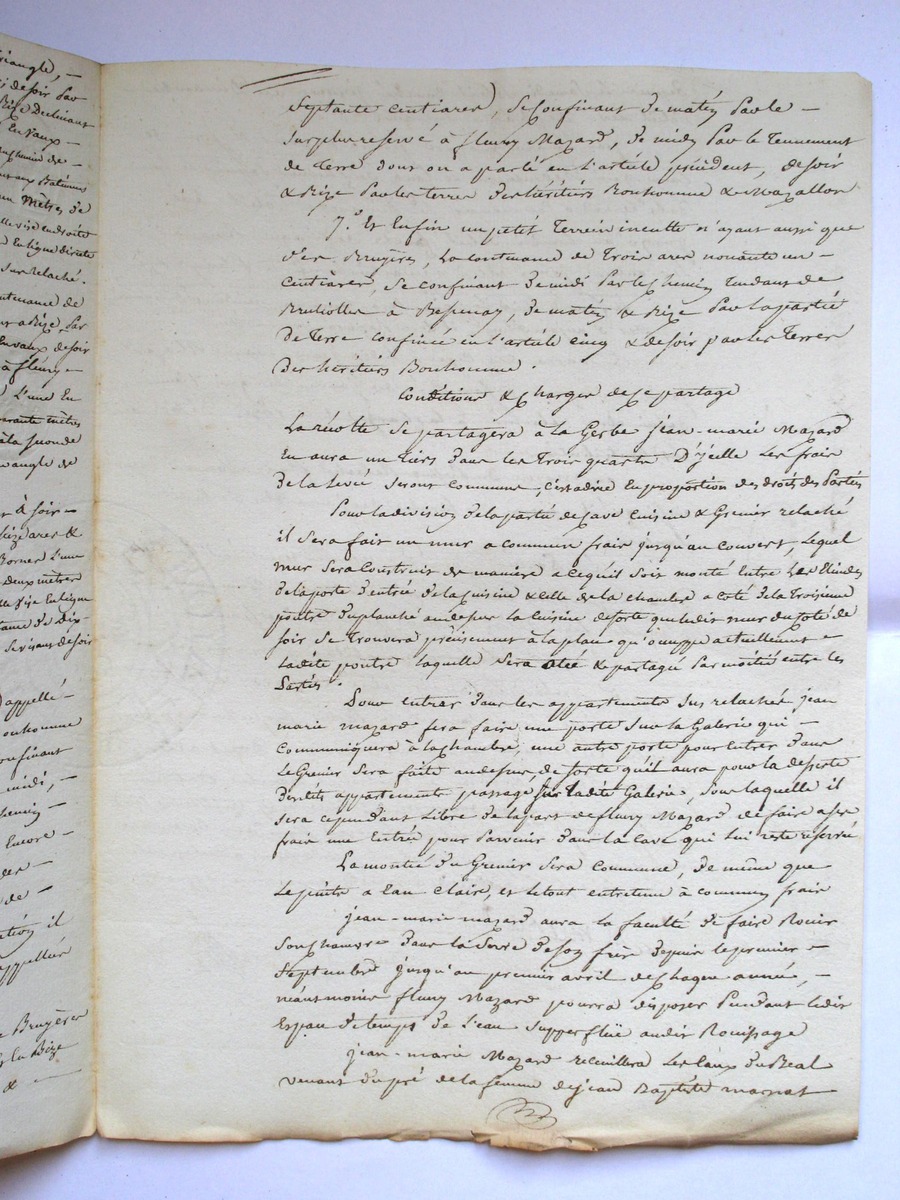 iangle, –
de soir par
Bize Declinant
En Vaux –
chemin de –
aux Batimens
un mètres de
En ligne directe
sus relaché.
contenance de
a Bize, par
En vaux de soir
à fleury –
L'une En
quarante mètres
à la seconde
un angle de
à soir –
seize ares &
Borner L'une
deux mètres
Bize En ligne
se visant de soir
appellé –
onhomme
onfinant
midi, –
hemin –
Encore –
de –
il
appellée
Bruyères
Bize
& –
septante centiares), se confinant de matin par le –
surplus reservé à fleury Mazard, de midy par le Tennement
de Terre dont on a parlé en L'article précédent, de soir
& Bize par les terres des héritiers Bonhomme & Mazallon
7.° Et Enfin un petit Terrein inculte n'ayant aussi que
des Bruyères, La contenance de Trois ares nonante un –
centiares, se confinant de midi par le chemin Tendant de
à Bessenay, de matin & Bize par la partie
De Terre confinée en L'article cinq & de soir par les Terres
Des héritiers Bonhomme.
Conditions & charges de ce partage
La récolte se partagera à la Gerbe jean-marie Mazard
En aura un tiers dans les Trois quarts D'ycelle Les frais
De la levée seront communs, c'est a dire En proportion des droits des Parties
Pour la division de la partie de cave cuisine & Grenier relaché
il sera fait un mur a communs frais jusqu'au couvert, Lequel
mur sera construit de manière a ce qu'il soit monté Entre Les
de la porte d'entrée de la cuisine & celle de la chambre a coté de la Troisieme
poutre du planché au dessus la cuisine de sorte que ledit mur du coté de
soir se Trouvera précisement à la place qu'occuppe actuellement –
Ladite poutre laquelle sera otée & partagée par moitié entre les
Parties.
Pour entrer dans les appartements sus relachés, jean
marie mazard fera faire une porte sur la Galerie qui –
communiquera à la chambre, une autre porte pour entrer dans
Le Grenier sera faite au dessus, de sorte qu'il aura pour la desserte
desdits appartements passage sur ladite Galerie, sous laquelle il
sera cependant Libre de la part de fleury Mazard de faire a ses
frais une Entrée pour parvenir dans la cave qui Lui reste réservée
La montée du Grenier sera commune, de même que
Le puits a Eau claire, et le tout entretenu à communs frais
jean-marie mazard aura la faculté de faire Rouir
son chanvre dans la serve de son frère depuis le premier –
septembre jusqu'au premier avril de chaque année, –
néantmoins fleury Mazard pourra disposer Pendant ledit
Espace de temps de L'eau supperflüe audit Rouissage
jean-marie Mazard recueillera Les Eaux du Béal
venant du pré de la femme de jean Baptiste marnat